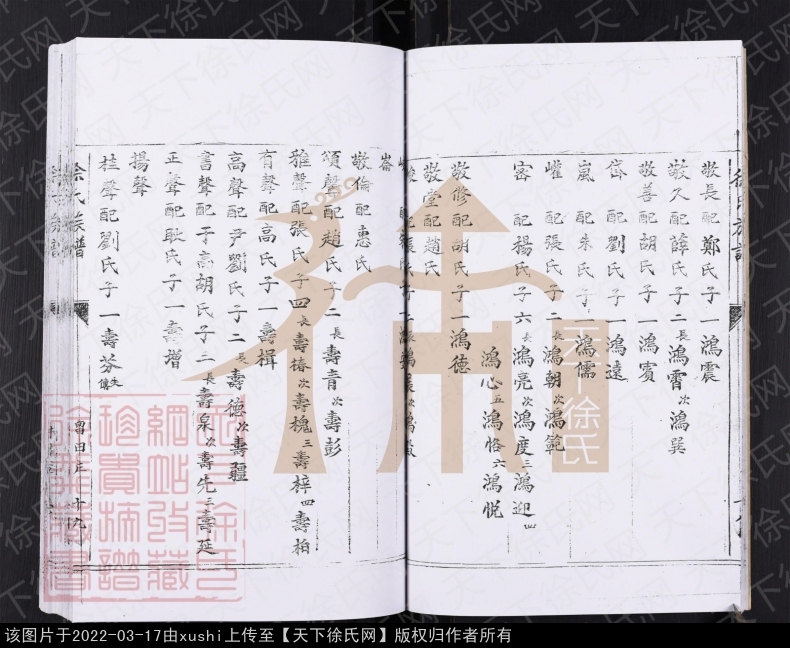 敬長配鄭氏子一鴻震
敬久配薛氏子二長鴻霄次鴻巽
敬善配胡氏子一鴻賓
岱配劉氏子一鴻遠
嵐配朱氏子一鴻儒
巏配張氏子二長鴻朝次鴻範
密配楊氏子六長鴻亮次鴻度三鴻迎四
鴻心五鴻恪六鴻悅
敬修配胡氏子一鴻德
敬堂配趙氏
配張氏子二
崙
敬倫配惠氏
頌聲配趙氏子二長壽育次壽彭
雅聲配張氏子四長壽椿次壽槐三壽梓四壽柏
有聲配高氏子一壽楫
高聲配尹劉氏子二長壽德次壽疆
書聲配于高胡氏子三長壽泉次壽先三壽延
正聲配耿氏子一壽增
揚聲
桂聲配劉氏子一壽芬失傳
徐氏族譜
留田庄 十九
天下徐氏
天下徐氏网
该图片于2022-03-17由xushi上传至【天下徐氏网】版权归作者所有